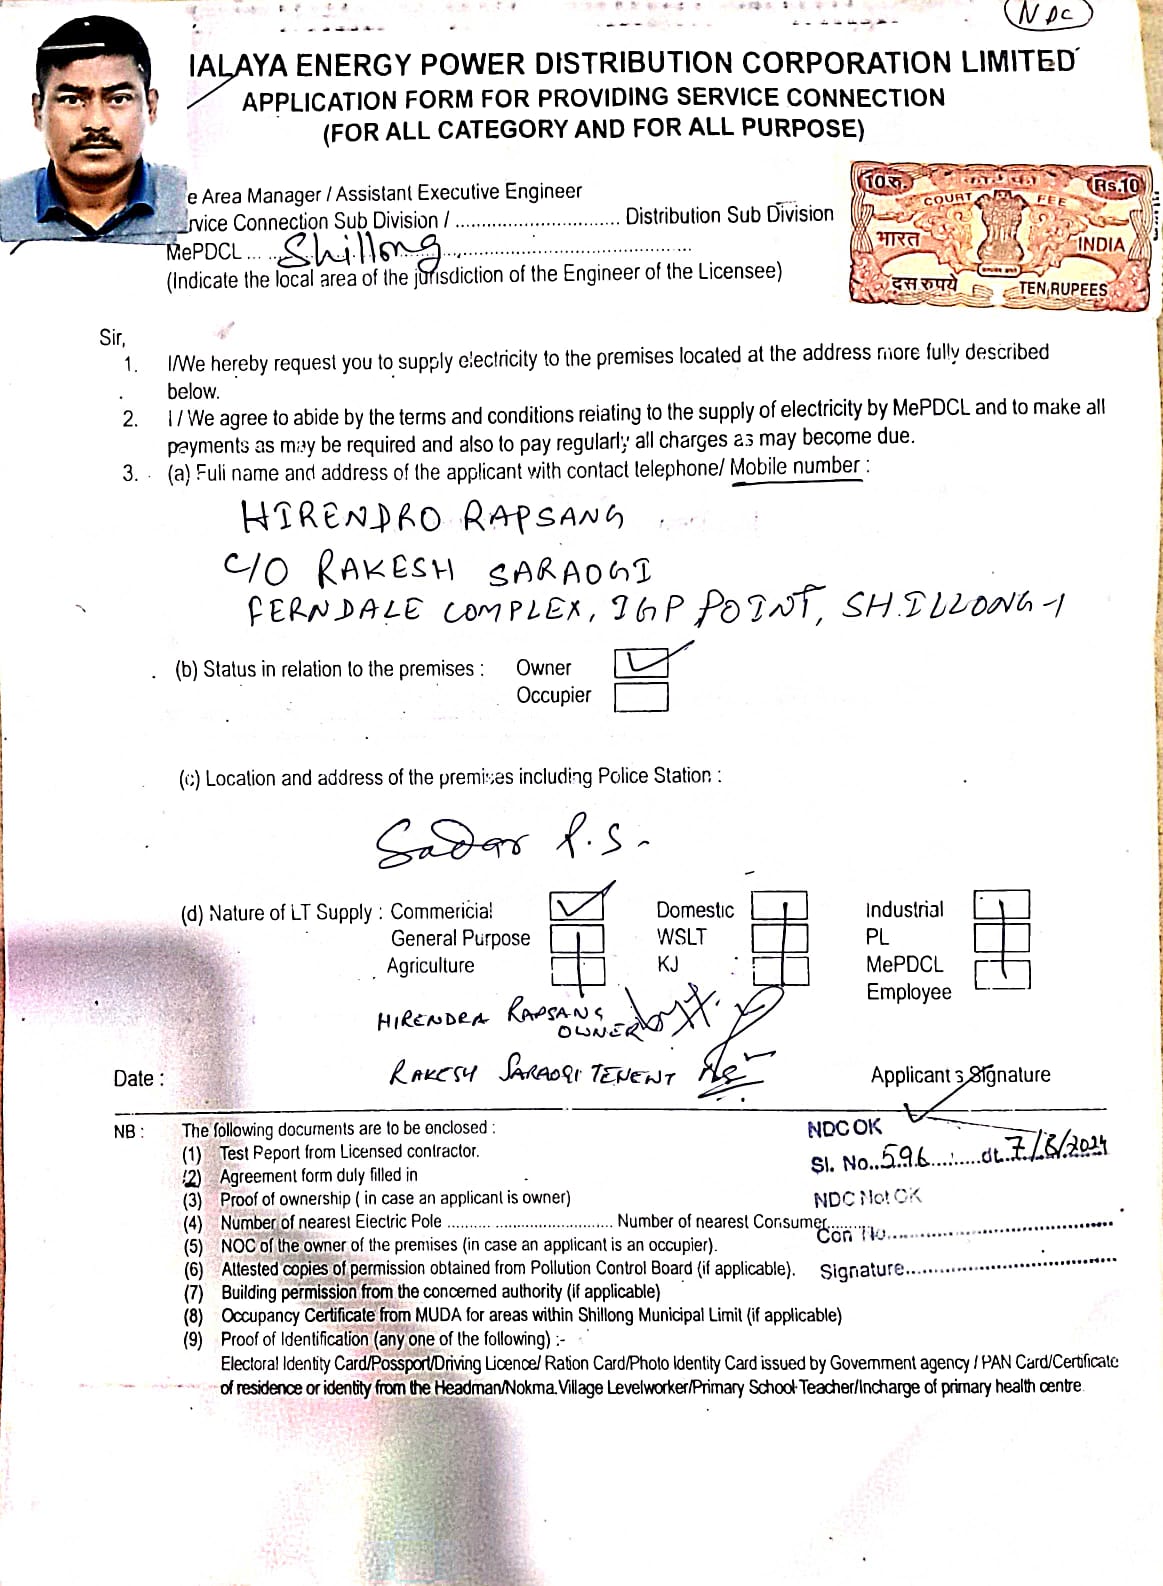 NDC
IALAYA ENERGY POWER DISTRIBUTION CORPORATION LIMITED
APPLICATION FORM FOR PROVIDING SERVICE CONNECTION
(FOR ALL CATEGORY AND FOR ALL PURPOSE)
e Area Manager / Assistant Executive Engineer
rvice Connection Sub Division / .............................. Distribution Sub Division
MePDCL ... .. Shillong ..............................................
(Indicate the local area of the jurisdiction of the Engineer of the Licensee)
10रु. Rs.10
COURT FEE
भारत INDIA
दस रुपये TEN RUPEES
Sir,
1. I/We hereby request you to supply electricity to the premises located at the address more fully described
below.
2. I / We agree to abide by the terms and conditions relating to the supply of electricity by MePDCL and to make all
payments as may be required and also to pay regularly all charges as may become due.
3. (a) Full name and address of the applicant with contact telephone/ Mobile number :
HIRENDRO RAPSANG
C/O RAKESH SARAOGI
FERNDALE COMPLEX, IGP POINT, SHILLONG-1
(b) Status in relation to the premises : Owner
Occupier
(c) Location and address of the premises including Police Station :
Sadar P.S.
(d) Nature of LT Supply : Commericial Domestic Industrial
General Purpose WSLT PL
Agriculture KJ MePDCL
Employee
HIRENDRA RAPSANG
OWNER
RAKESH SARAOGI TENENT
Date : Applicant's Signature
NB : The following documents are to be enclosed :
(1) Test Report from Licensed contractor.
(2) Agreement form duly filled in
(3) Proof of ownership ( in case an applicant is owner)
(4) Number of nearest Electric Pole .......... ............................ Number of nearest Consumer..........
(5) NOC of the owner of the premises (in case an applicant is an occupier).
(6) Attested copies of permission obtained from Pollution Control Board (if applicable).
(7) Building permission from the concerned authority (if applicable)
(8) Occupancy Certificate from MUDA for areas within Shillong Municipal Limit (if applicable)
(9) Proof of Identification (any one of the following) :-
Electoral Identity Card/Possport/Driving Licence/ Ration Card/Photo Identity Card issued by Government agency / PAN Card/Certificate
of residence or identity from the Headman/Nokma. Village Levelworker/Primary School Teacher/Incharge of primary health centre.
NDC OK
Sl. No..596..........dt.7/8/2024
NDC Not OK
Con No.......................................
Signature.....................................